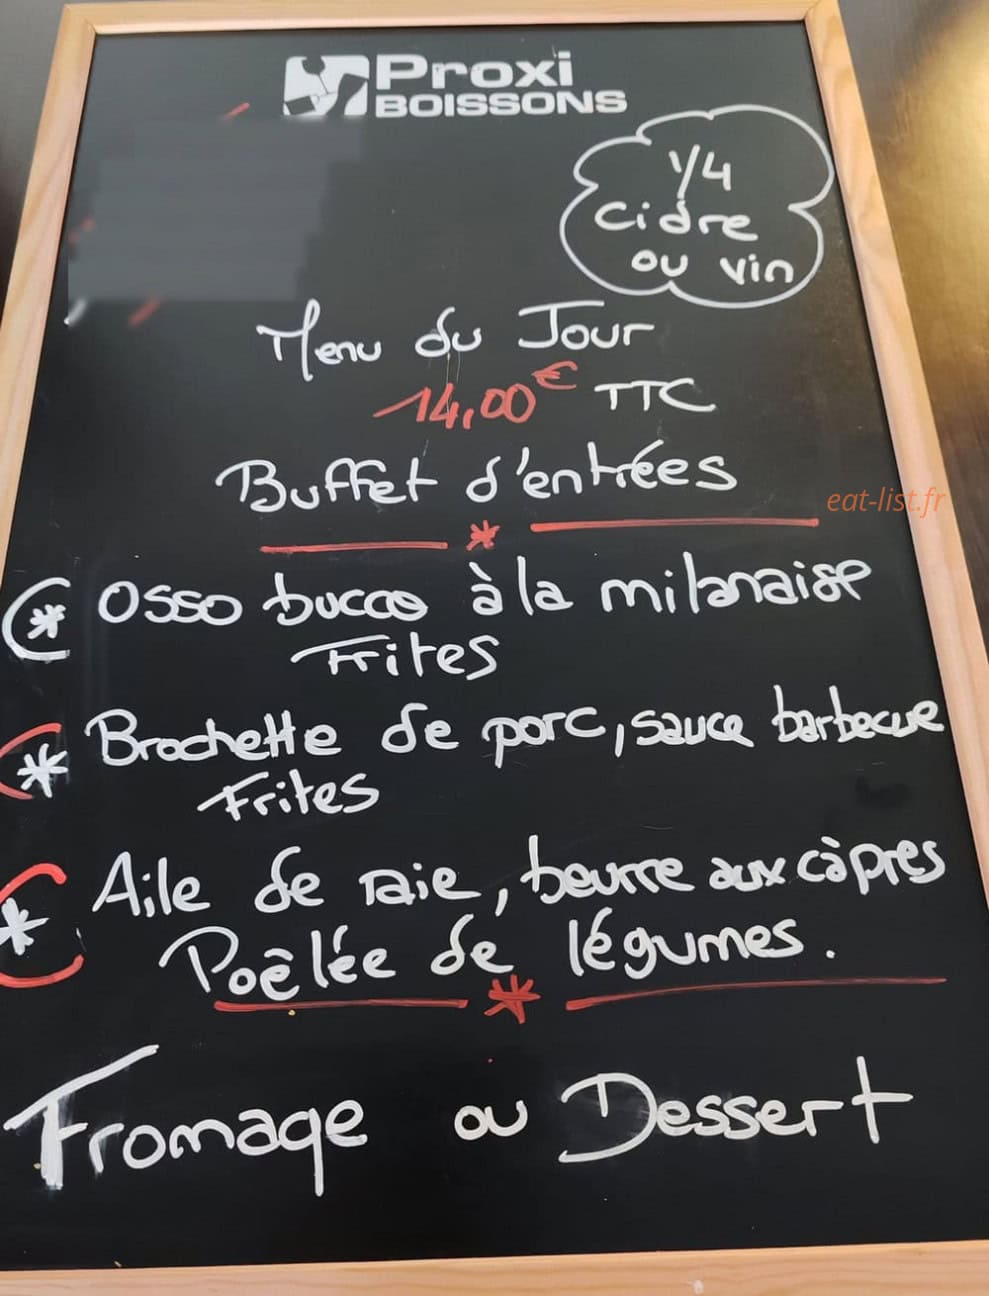 Proxi
BOISSONS
1/4
Cidre
ou vin
Menu du Jour
14,00€ TTC
Buffet d'entrées
eat-list.fr
* Osso bucco à la milanaise
Frites
* Brochette de porc, sauce barbecue
Frites
* Aile de raie, beurre aux càpres
Poêlée de légumes.
Fromage ou Dessert